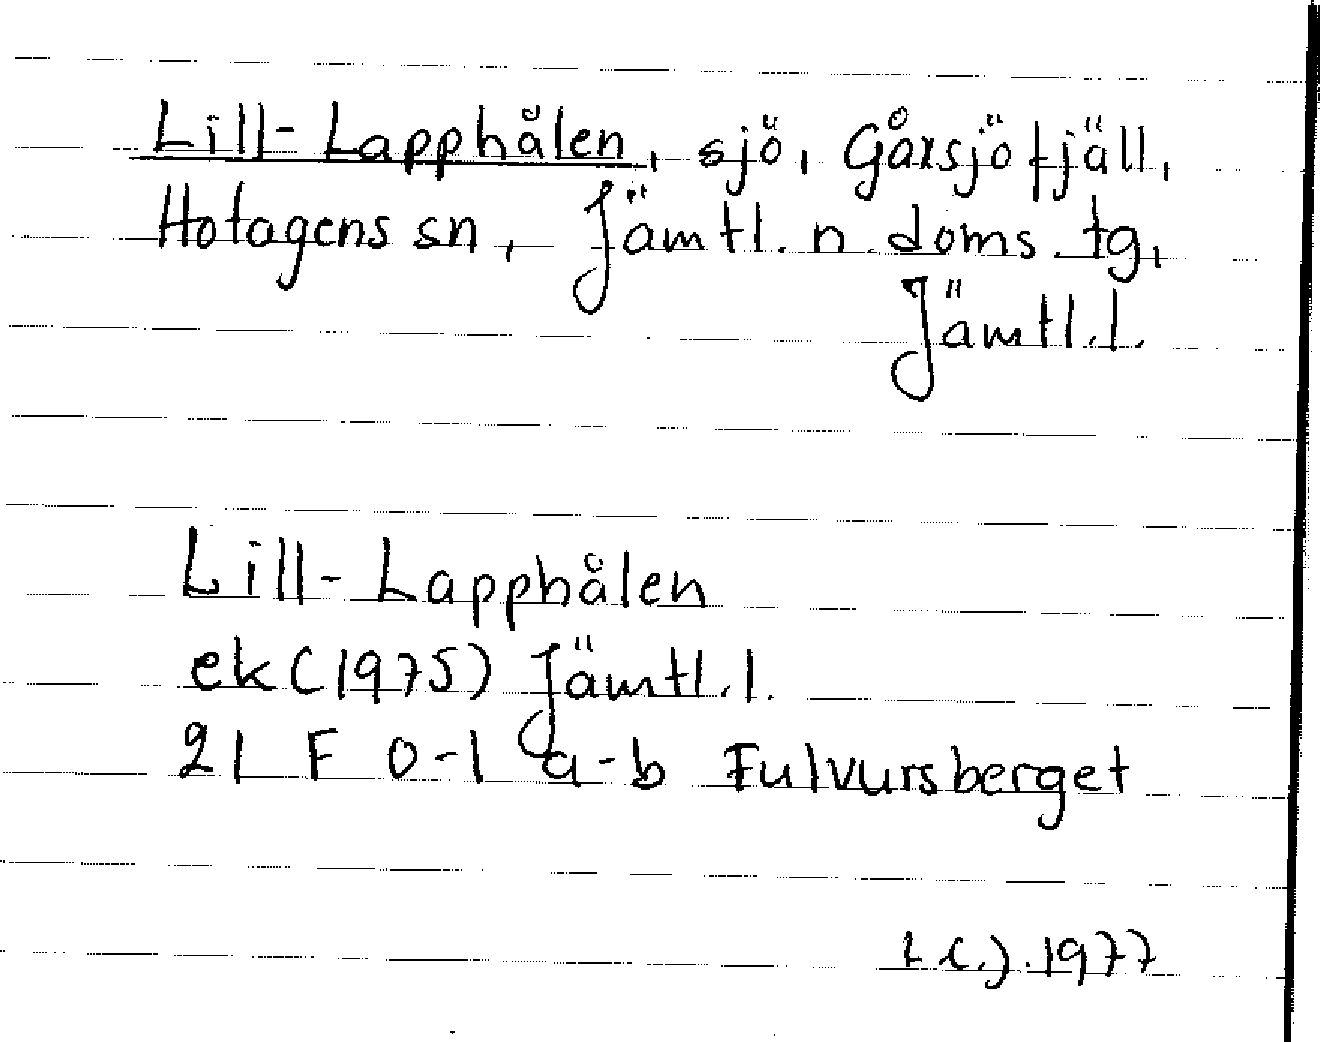 Lill-Lapphålen, sjö, Gåxsjöfjäll,
Hotagens sn, Jämtl. n. doms. tg,
Jämtl. l.
Lill-Lapphålen
ek (1975) Jämtl. l.
21 F 0-1 a-b Fulvursberget
1977